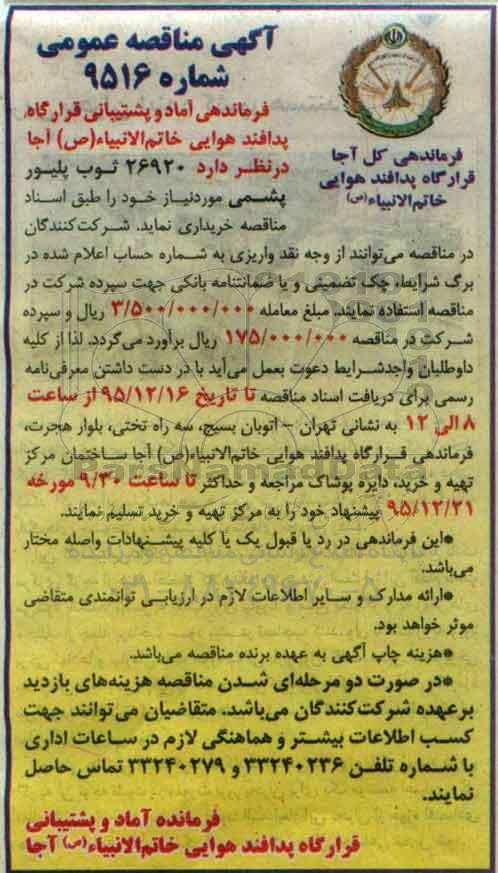 آگهی مناقصه عمومی
شماره ۹۵۱۶
فرماندهی کل آجا
قرارگاه پدافند هوایی
خاتم‌الانبیاء(ص)
فرماندهی آماد و پشتیبانی قرارگاه
پدافند هوایی خاتم‌الانبیاء(ص) آجا
درنظر دارد ۲۶۹۲۰ ثوب پلیور
پشمی موردنیاز خود را طبق اسناد
مناقصه خریداری نماید. شرکت‌کنندگان
در مناقصه می‌توانند از وجه نقد واریزی به شماره حساب اعلام شده در
برگ شرایط، چک تضمینی و یا ضمانتنامه بانکی جهت سپرده شرکت در
مناقصه استفاده نمایند. مبلغ معامله ۳/۵۰۰/۰۰۰/۰۰۰ ریال و سپرده
شرکت در مناقصه ۱۷۵/۰۰۰/۰۰۰ ریال برآورد می‌گردد. لذا از کلیه
داوطلبان واجدشرایط دعوت بعمل می‌آید با در دست داشتن معرفی‌نامه
رسمی برای دریافت اسناد مناقصه تا تاریخ ۹۵/۱۲/۱۶ از ساعت
۸ الی ۱۲ به نشانی تهران – اتوبان بسیج، سه راه تختی، بلوار هجرت،
فرماندهی قرارگاه پدافند هوایی خاتم‌الانبیاء(ص) آجا ساختمان مرکز
تهیه و خرید، دایره پوشاک مراجعه و حداکثر تا ساعت ۹/۳۰ مورخه
۹۵/۱۲/۲۱ پیشنهاد خود را به مرکز تهیه و خرید تسلیم نمایند.
*این فرماندهی در رد یا قبول یک یا کلیه پیشنهادات واصله مختار
می‌باشد.
*ارائه مدارک و سایر اطلاعات لازم در ارزیابی توانمندی متقاضی
موثر خواهد بود.
*هزینه چاپ آگهی به عهده برنده مناقصه می‌باشد.
*در صورت دو مرحله‌ای شدن مناقصه هزینه‌های بازدید
برعهده شرکت‌کنندگان می‌باشد. متقاضیان می‌توانند جهت
کسب اطلاعات بیشتر و هماهنگی لازم در ساعات اداری
با شماره تلفن ۳۳۲۴۰۲۳۶ و ۳۳۲۴۰۲۷۹ تماس حاصل
نمایند.
فرمانده آماد و پشتیبانی
قرارگاه پدافند هوایی خاتم‌الانبیاء(ص) آجا